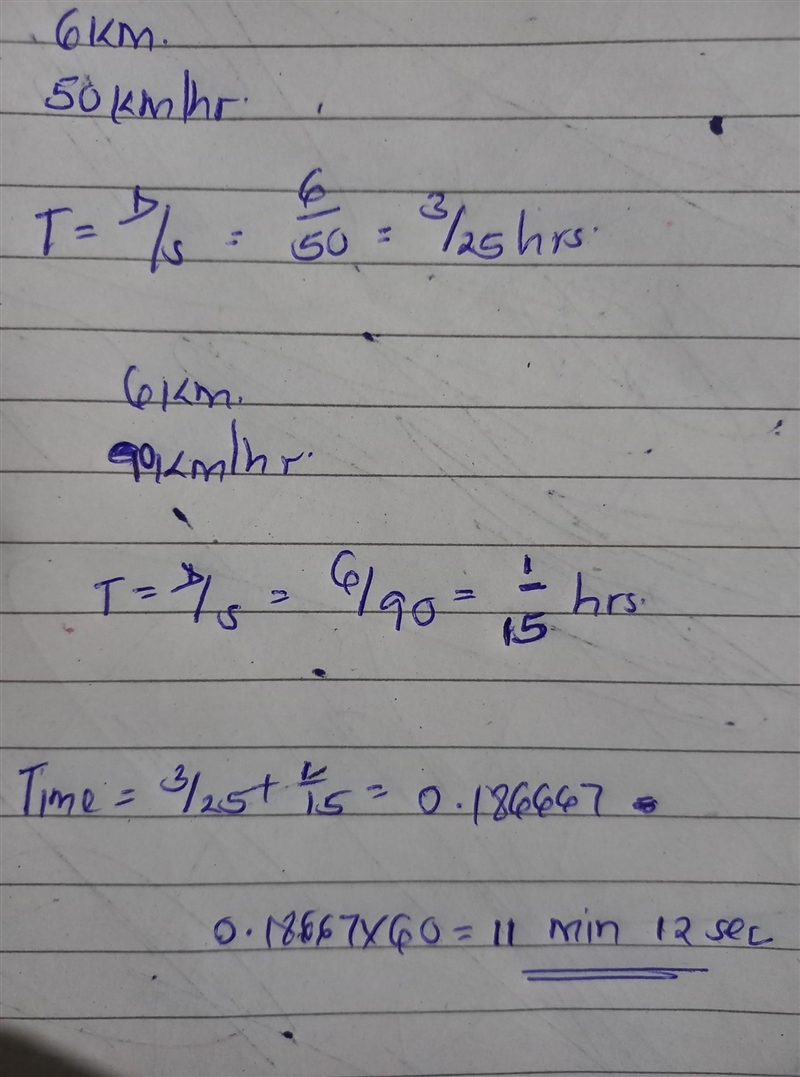 6km.
50km/hr.
T = D/s = 6/50 = 3/25 hrs.
6km.
90km/hr.
T = D/s = 6/90 = 1/15 hrs.
Time = 3/25 + 1/15 = 0.186667
0.18667x60 = 11 min 12 sec